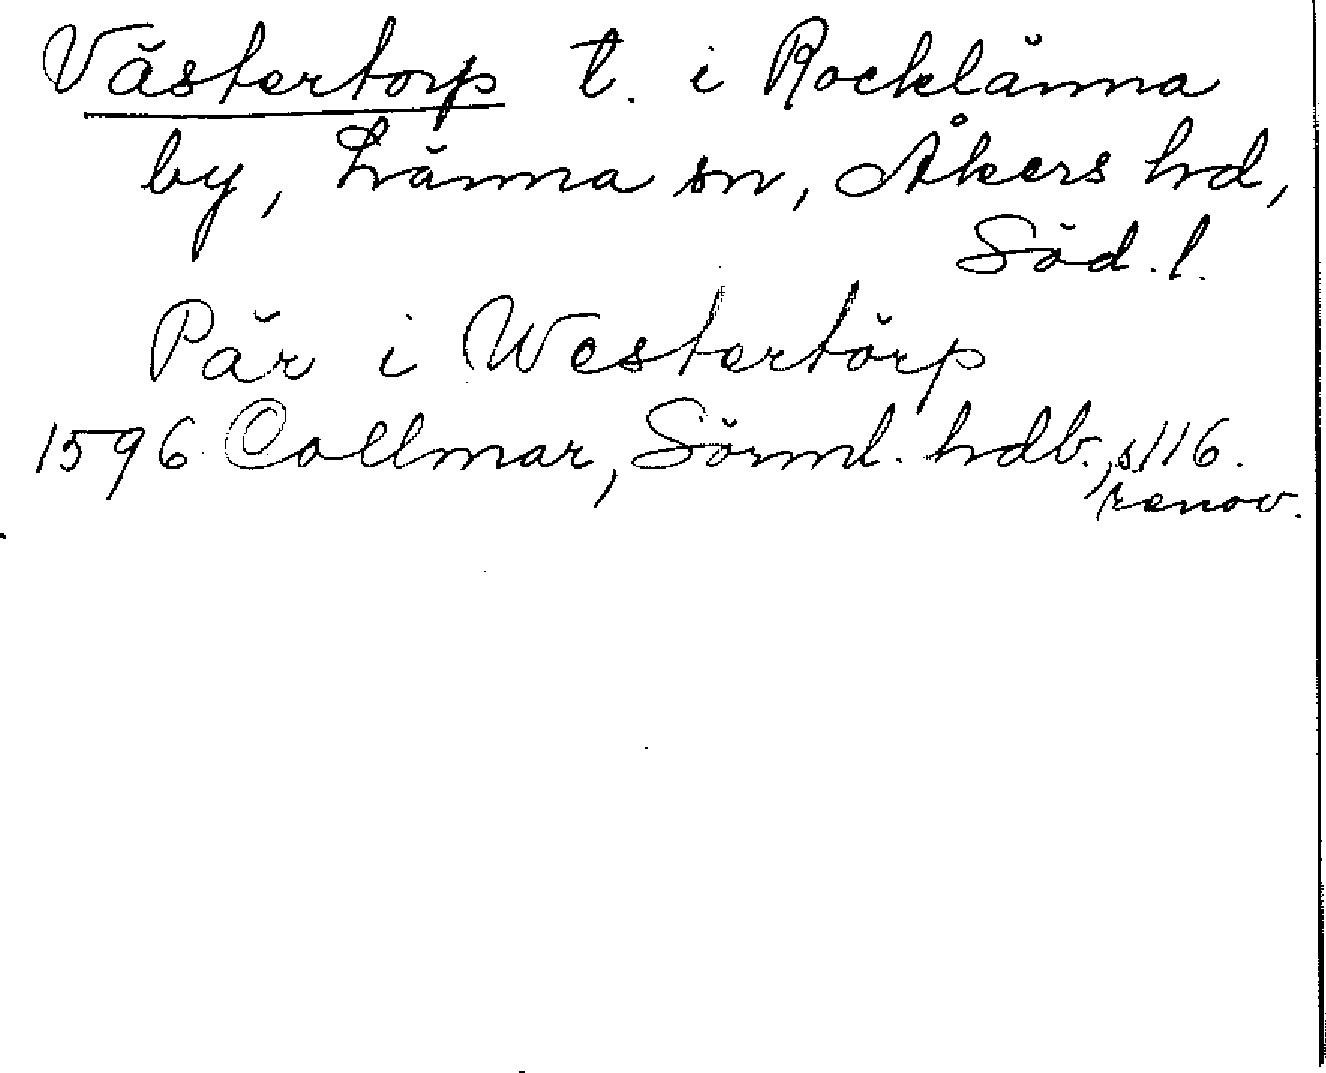 Västertorp t. i Rocklänna
by, Länna sn, Åkers hd,
Söd.l.
Pär i Westertörp
1596 Collmar, Sörml. hdb., s. 116.
renov.